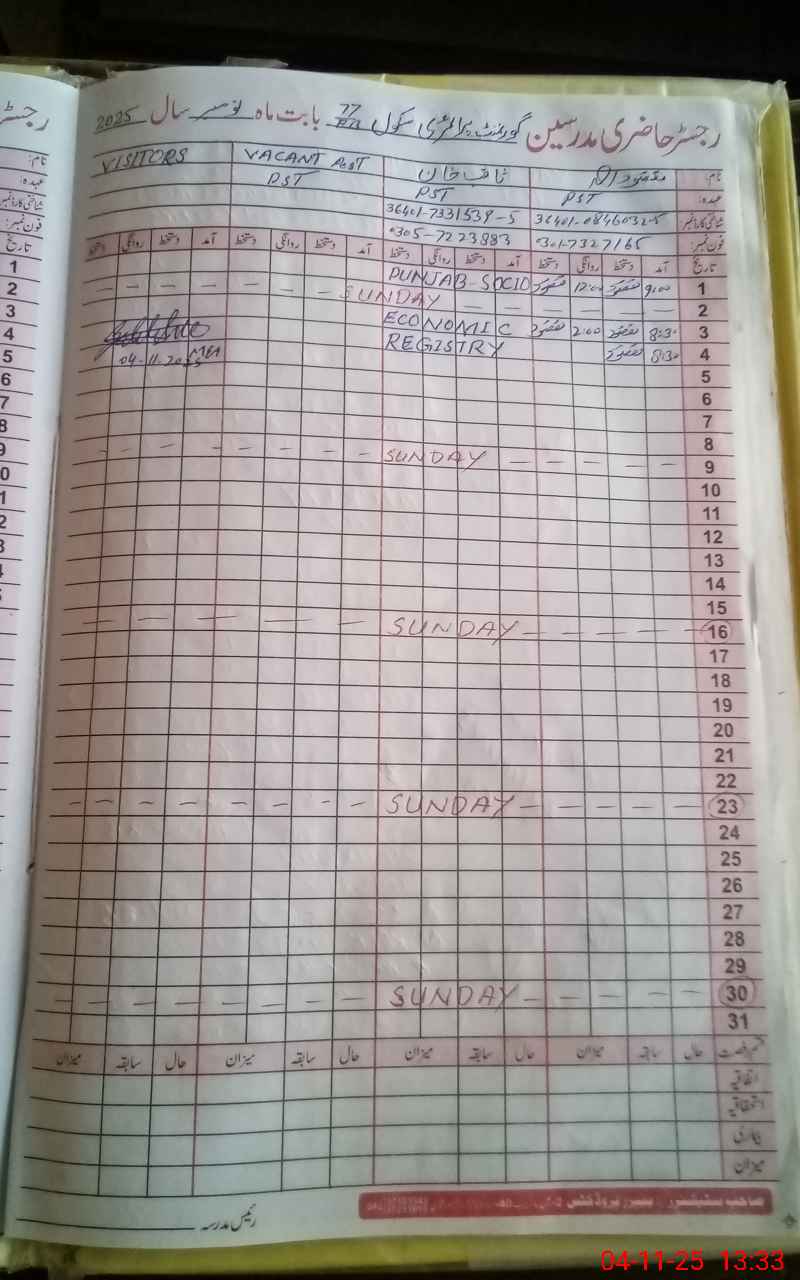 رجسٹر حاضری مدرسین گورنمنٹ پرائمری سکول 77 بابت ماہ نومبر سال 2025
نام: مقصود ثاقب خان VACANT POST VISITORS
عہدہ: PST PST PST
شناختی کارڈ نمبر: 36401-0846032-5 36401-7331539-5
فون نمبر: 0301-7327165 0305-7223883
تاریخ آمد دستخط روانگی دستخط آمد دستخط روانگی دستخط آمد دستخط روانگی دستخط آمد دستخط روانگی دستخط
1 9:00 مقصود 12:00 مقصود PUNJAB-SOCIO
2 — — — — SUNDAY — — — — — — — —
3 8:30 مقصود 2:00 مقصود ECONOMIC
4 8:30 مقصود REGISTRY 04-11-2025
5
6
7
8
9 — — — — SUNDAY — — — — — —
10
11
12
13
14
15
16 — — — — SUNDAY — — — — —
17
18
19
20
21
22
23 — — — — SUNDAY — — — — — — — —
24
25
26
27
28
29
30 — — — — SUNDAY — — — — — — — —
31
قسم رخصت حال سابقہ میزان حال سابقہ میزان حال سابقہ میزان حال سابقہ میزان
اتفاقیہ
استحقاقیہ
بیماری
میزان
صاحب سٹیشنرز
رئیس مدرسہ
04-11-25 13:33